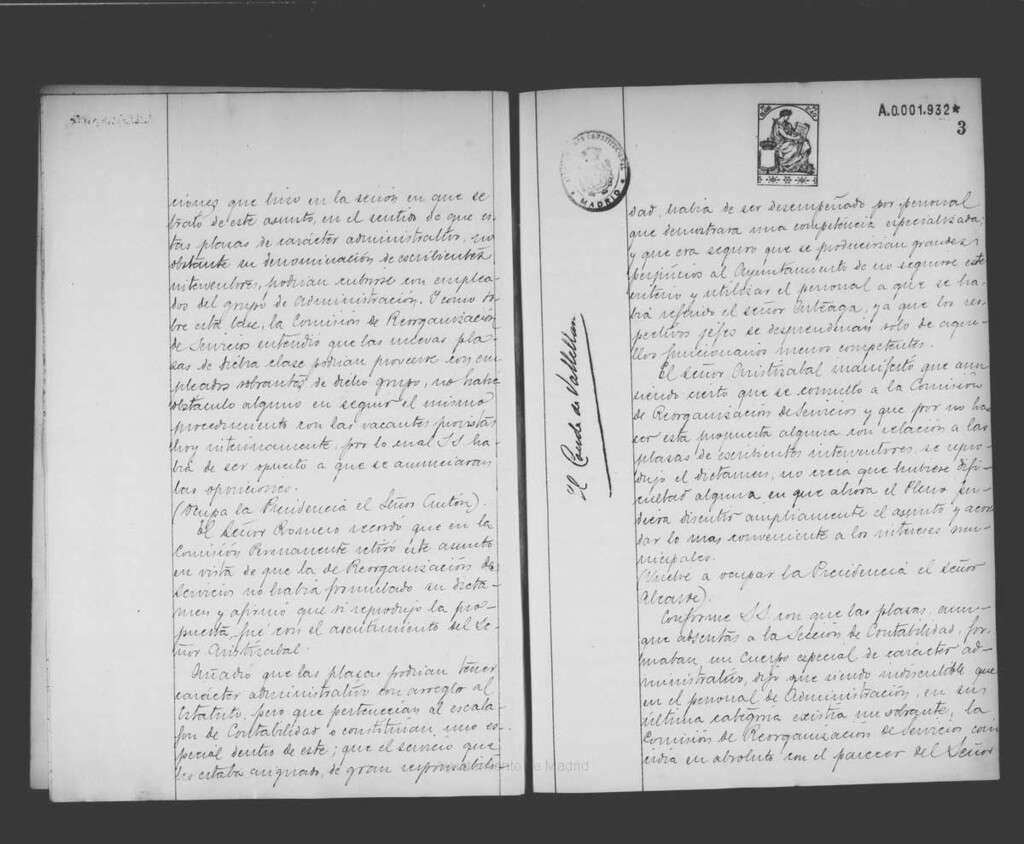 niones que hizo en la sesión en que se
trató de este asunto, en el sentido de que es-
tas plazas de carácter administrativo, no
obstante su denominación de escribientes
interventores, podrían cubrirse con emplea-
dos del grupo de Administración. Y como so-
bre esta base, la Comisión de Reorganización
de Servicios entendió que las nuevas pla-
zas de dicha clase podrían proveerse con em-
pleados sobrantes de dicho grupo, no había
obstáculo alguno en seguir el mismo
procedimiento con las vacantes provistas
hoy interinamente, por lo cual S.S. ha-
bía de ser opuesto a que se anunciaran
las oposiciones.
(Ocupa la Presidencia el Señor Antón).
El Señor Romero recordó que en la
Comisión Permanente retiró este asunto
en vista de que la de Reorganización de
Servicios no había formulado su dicta-
men y afirmó que si reprodujo la pro-
puesta, fué con el asentimiento del Se-
ñor Aristizabal.
Añadió que las plazas podrían tener
carácter administrativo con arreglo al
Estatuto, pero que pertenecían al escala-
fón de Contabilidad o constituían uno es-
pecial dentro de este; que el servicio que
les estaba asignado, de gran responsabili-
Madrid
MADRID
A.0.001.932*
3
El Conde de Vallellano
dad, había de ser desempeñado por personal
que demostrara una competencia especializada;
y que era seguro que se producirían grandes
perjuicios al Ayuntamiento de no seguirse este
criterio y utilizar el personal a que se ha-
bía referido el señor Arteaga, ya que los res-
pectivos jefes se desprenderían solo de aque-
llos funcionarios menos competentes.
El señor Aristizabal manifestó que aun
siendo cierto que se consultó a la Comisión
de Reorganización de Servicios y que por no ha-
cer esta propuesta alguna con relación a las
plazas de escribientes interventores, se repro-
dujo el dictamen, no creía que hubiese difi-
cultad alguna en que ahora el Pleno pu-
diera discutir ampliamente el asunto y acor-
dar lo mas conveniente a los intereses mu-
nicipales.
(Vuelve a ocupar la Presidencia el señor
Alcalde).
Conforme S.S. con que las plazas, aun-
que adscritas a la Sección de Contabilidad, for-
maban un cuerpo especial de carácter ad-
ministrativo, dijo que siendo indiscutible que
en el personal de Administración, en su
última categoría existía un sobrante, la
Comisión de Reorganización de Servicios coin-
cidía en absoluto con el parecer del Señor